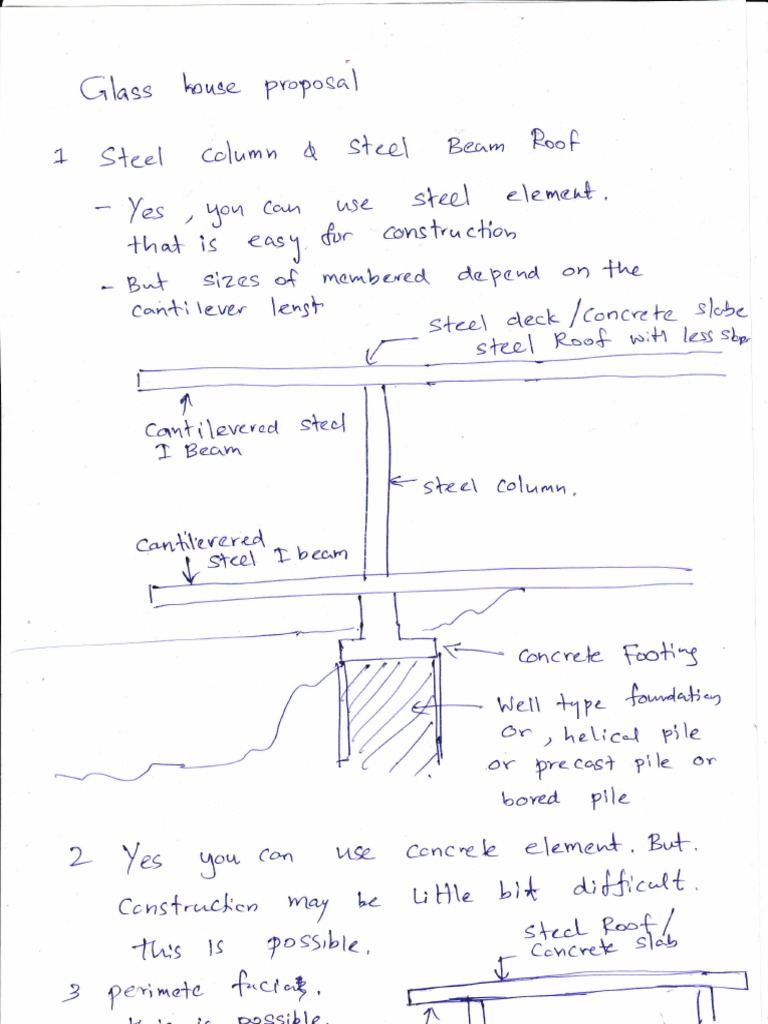 Glass house proposal
1 Steel column & Steel Beam Roof
- Yes, you can use steel element.
that is easy for construction
- But sizes of membered depend on the
cantilever lengt
Steel deck/Concrete slabe
steel Roof with less slop
Cantilevered steel
I Beam
Steel column.
Cantilevered
Steel I beam
Concrete Footing
Well type foundation
or, helical pile
or precast pile or
bored pile
2 Yes you can use concrete element. But.
Construction may be little bit difficult.
this is possible.
Steel Roof/
Concrete slab
3 perimete facias.
is possible.